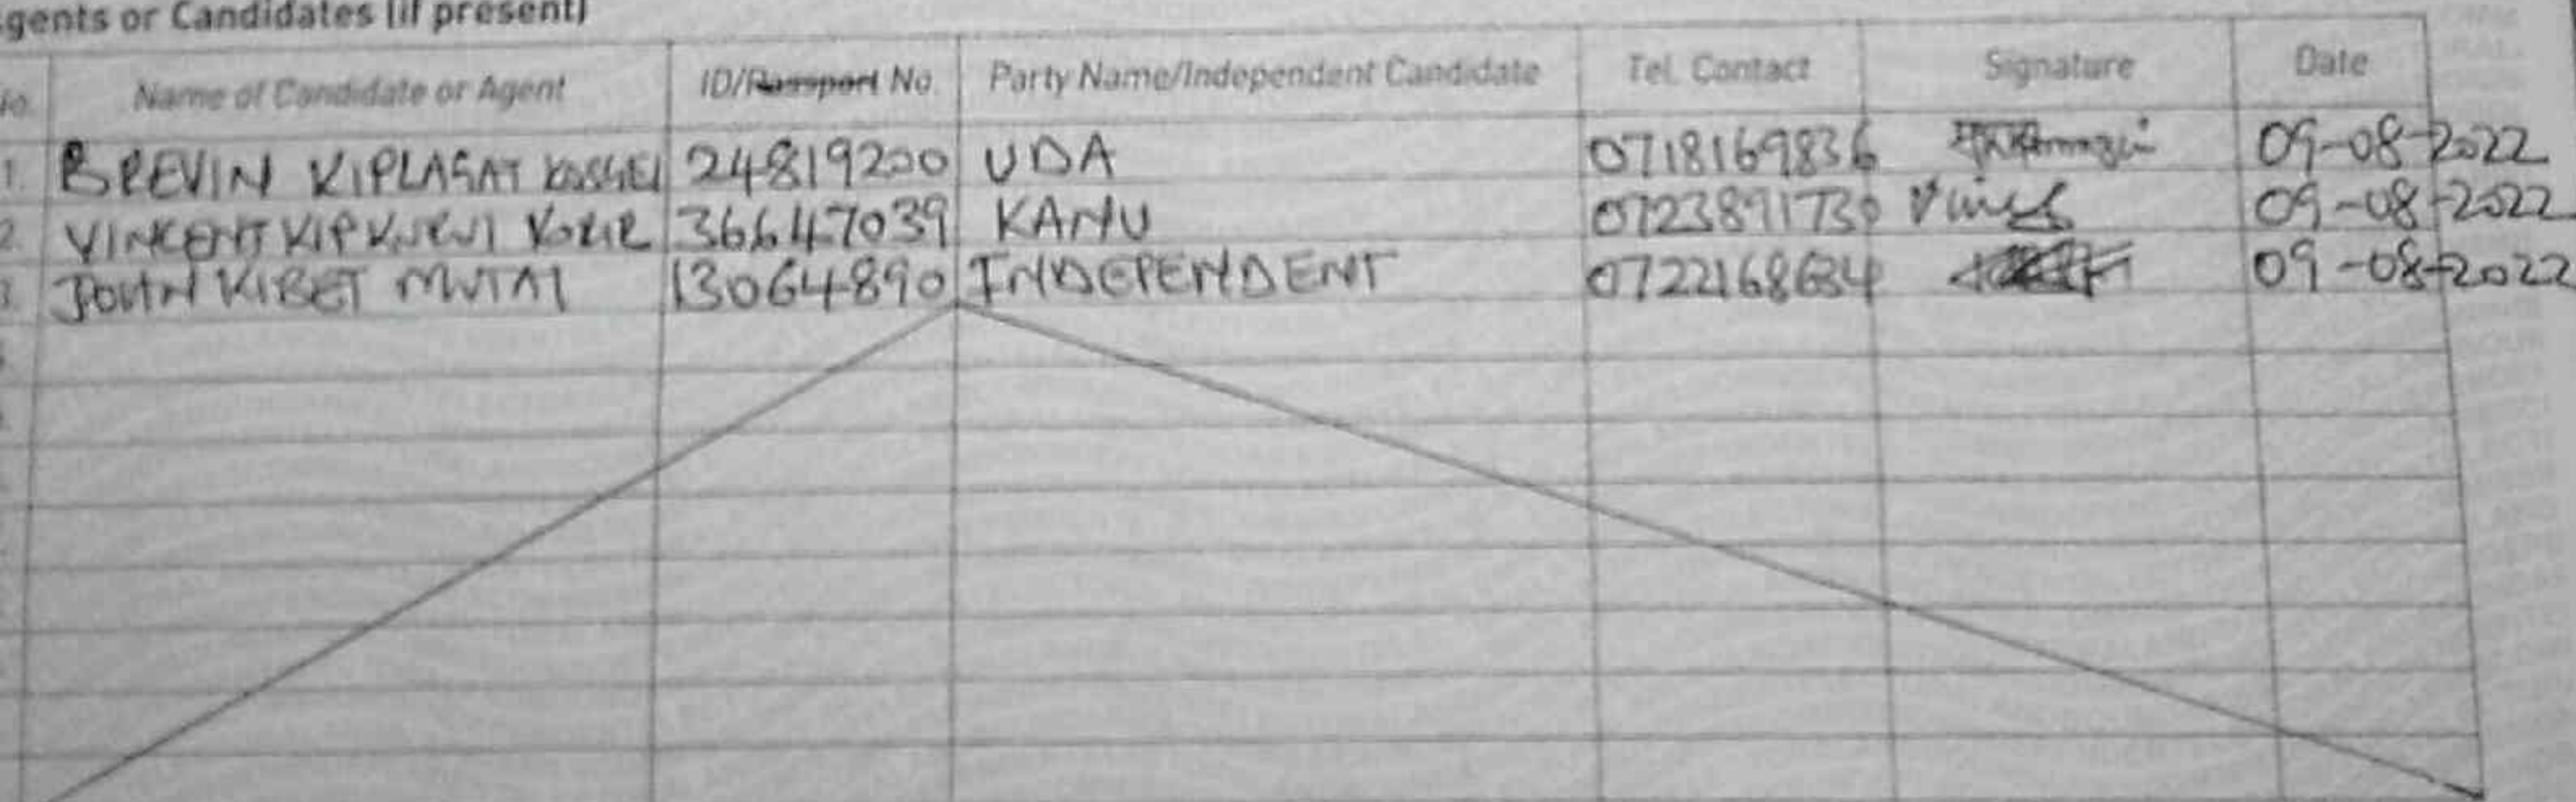 gents or Candidates (if present)
No. Name of Candidate or Agent ID/Passport No. Party Name/Independent Candidate Tel. Contact Signature Date
1. BREVIN KIPLAGAT KOSGEI 24819200 UDA 0718169836 09-08-2022
2. VINCENT KIPKURUI KORIR 36647039 KANU 0723891730 09-08-2022
3. JOHN KIBET MUTAI 13064890 INDEPENDENT 0722168634 09-08-2022